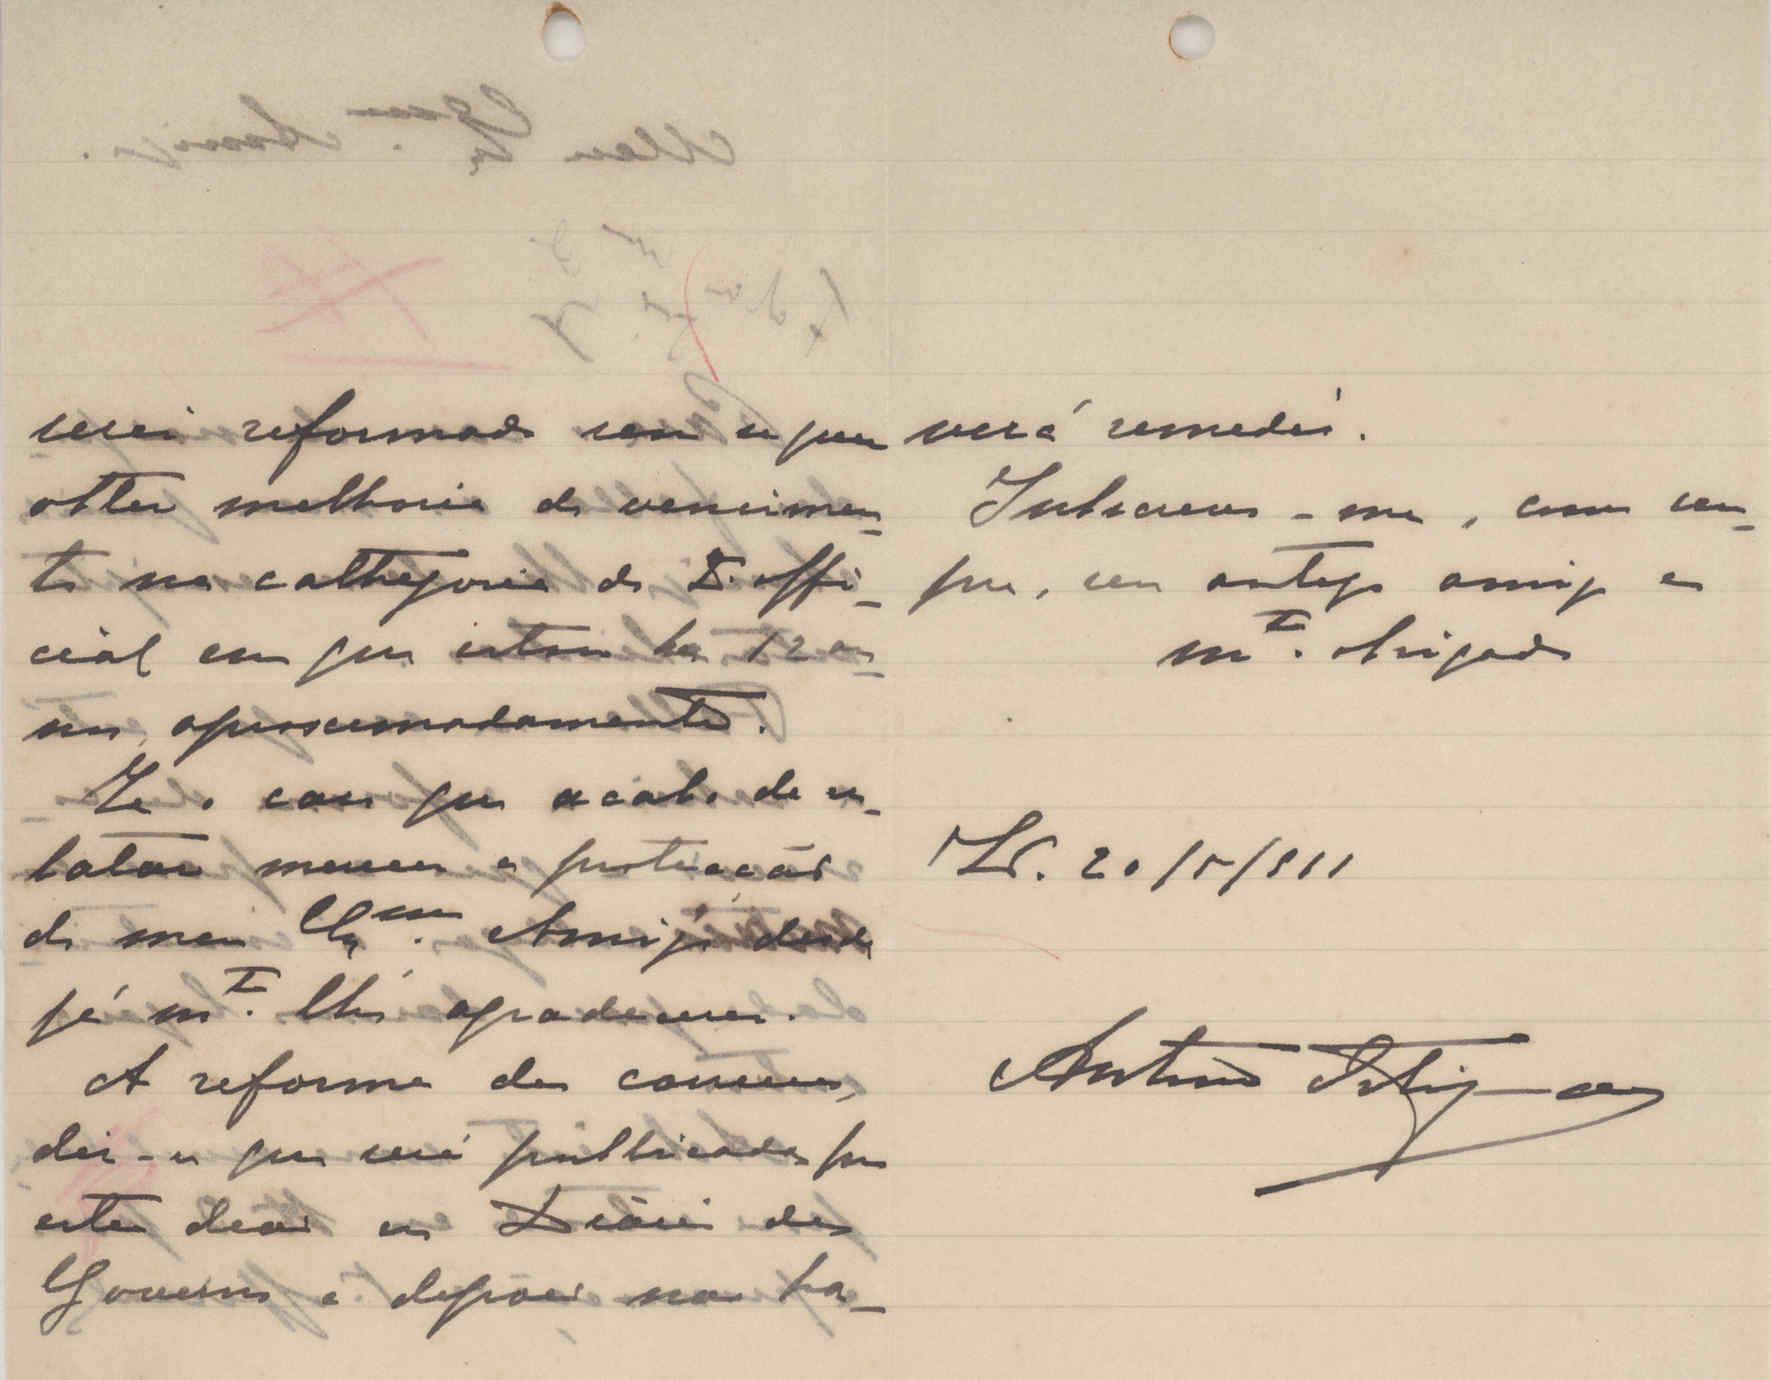 serei reformado sem que
obter melhoria de vencimen-
to na cathegoria de 2.º offi-
cial em que estou ha 12 an-
nos, aproximadamente.
Se o caso que acabo de re-
latar merecer a protecção
do meu Ex.mo Amigo desde
já m.to lh'o agradecerei.
A reforma dos correios,
diz-se que será publicada por
estes dias no Diario do
Governo e depois não ha-
verá remedio.
Subscrevo-me, como sem-
pre, seu antigo amigo e
m.to obrigado
20/5/911
Antonio